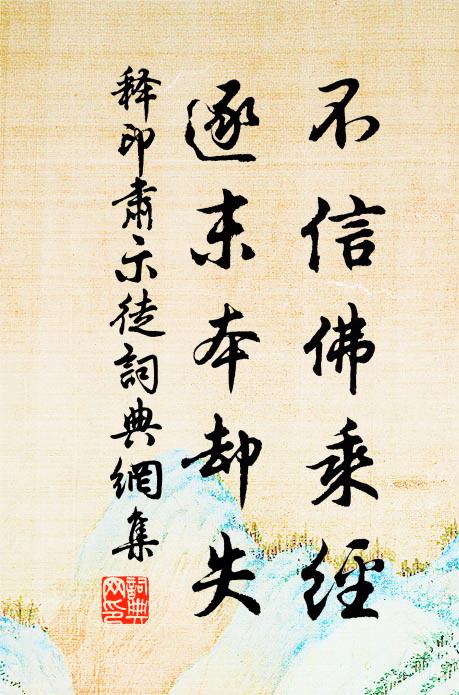 不信佛乘經
逐末本却失
释印肅示徒詞典網集
詞典文化